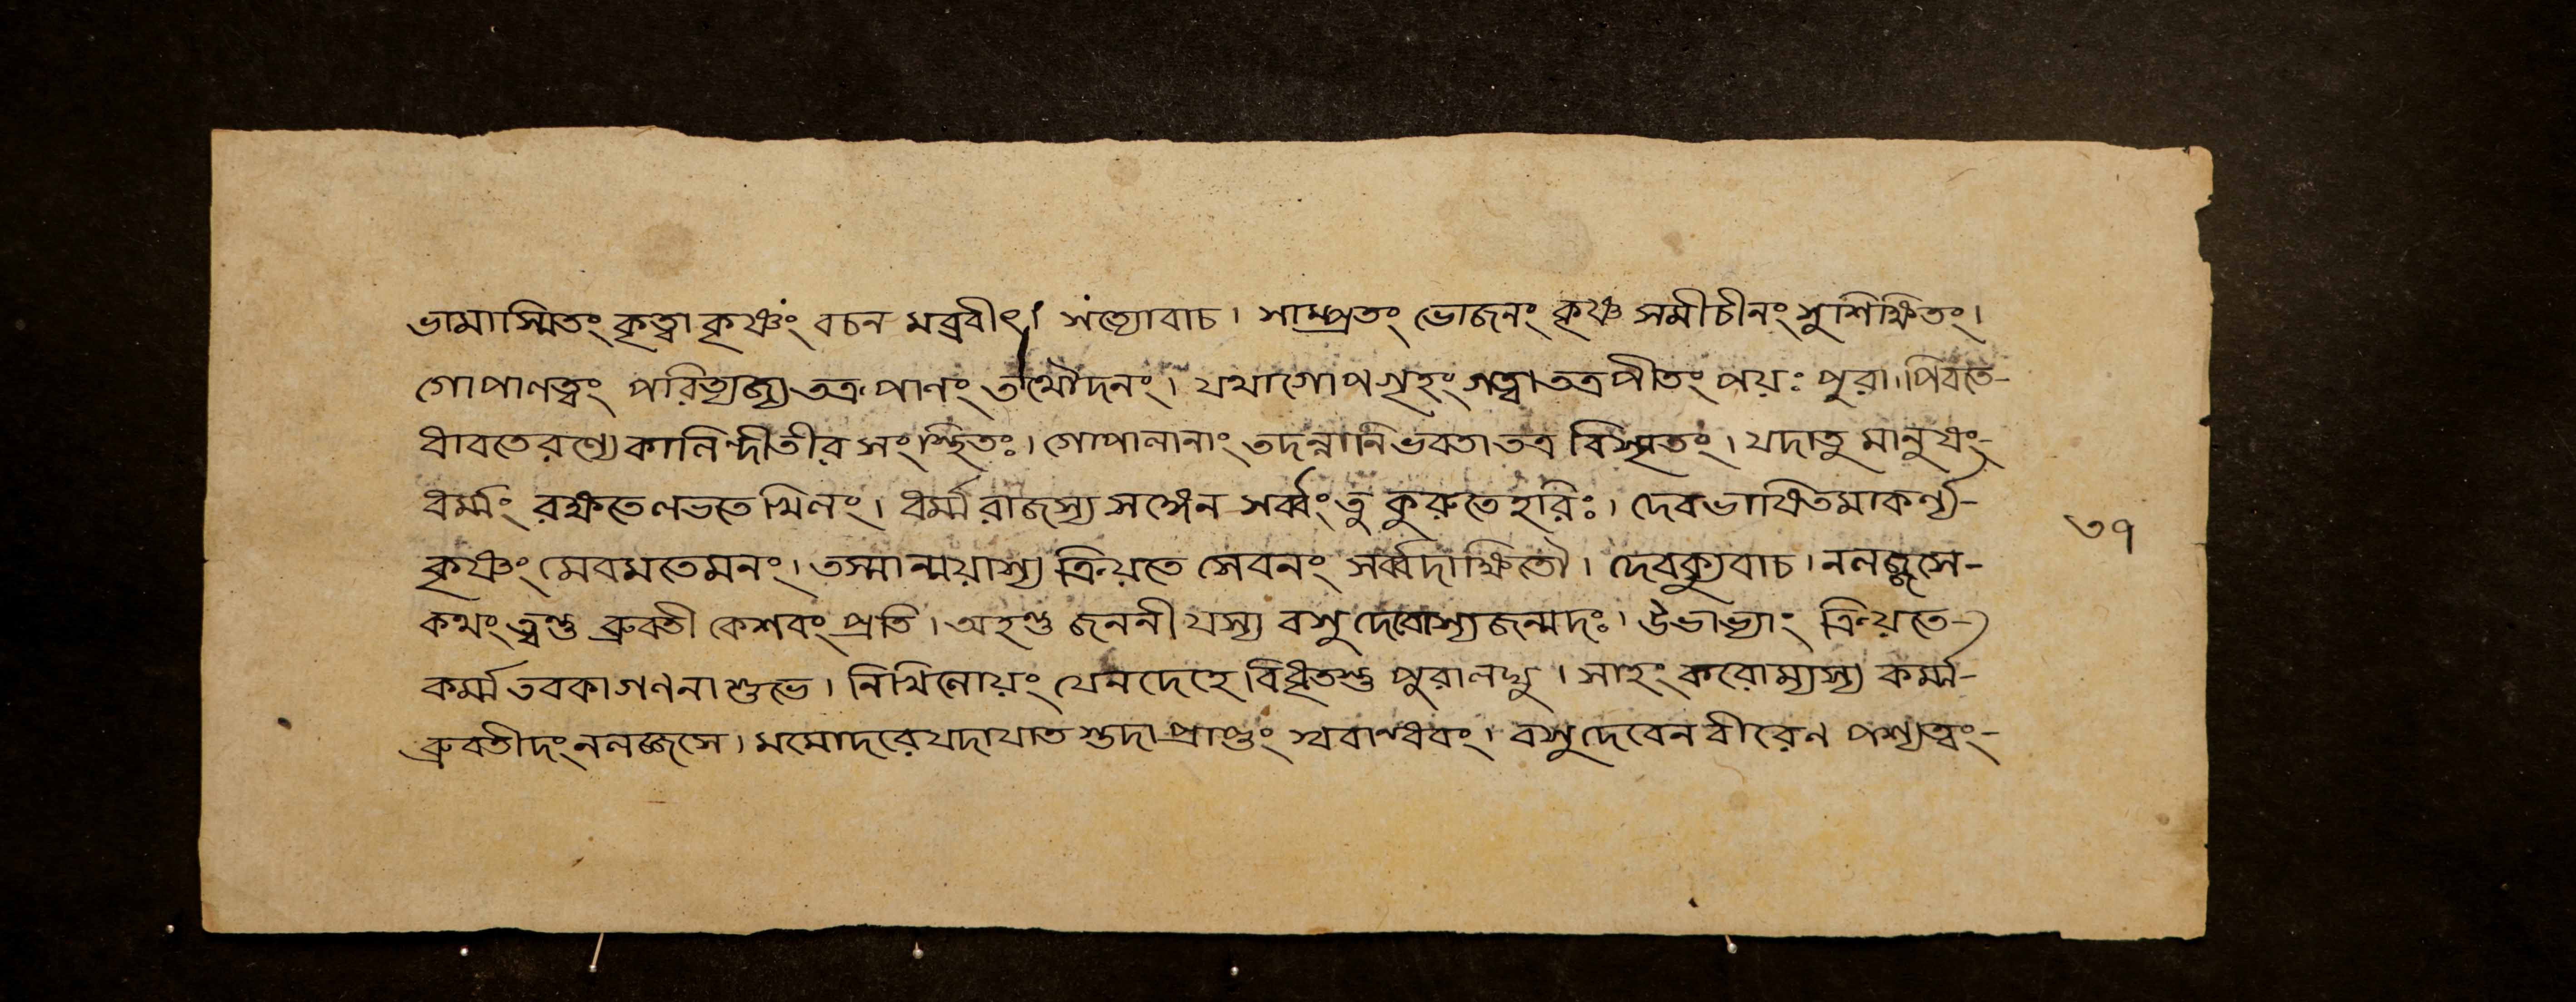 ভামাস্মিতং কৃত্বা কৃষ্ণং বচন মব্রবীৎ। সত্যোবাচ। সাম্প্রতং ভোজনং কৃষ্ণ সমীচীনং সুশিক্ষিতং।
গোপালত্বং পরিত্যজ্য তত্র পানং তথৌদনং। যথা গোপগৃহং গত্বা তত্র পীতং পয়ঃ পুরা। পিবতে-
ধাবতেরণ্যে কালিন্দীতীর সংস্থিতঃ। গোপালানাং তদন্নানি ভবতা তত্র বিস্মৃতং। যদাতু মানুষং-
ধর্ম্মং রক্ষতে লভতে খিলং। ধর্ম্মরাজস্য সঙ্গেন সর্ব্বং তু কুরুতে হরিঃ। দেবভাষিতমাকর্ণ্য-
কৃষ্ণং মেবমতে মনং। তস্মান্ময়াস্য ক্রিয়তে সেবনং সর্ব্বদাক্ষিতৌ। দেবক্যুবাচ। নলজ্জসে-
কথং ত্বন্তু ব্রুবতী কেশবং প্রতি। অহন্তু জননী যস্য বসুদেবোস্য জন্মদঃ। উভাভ্যাং ক্রিয়তে-
কর্ম্ম তবকা গণনা শুভে। নিখিলোয়ং যেন দেহে বিধৃতস্তু পুরালঘু। সাহং করোম্যস্য কর্ম্ম-
ব্রুবতীদং নলজ্জসে। মমোদরে যদাযাত স্তদা প্রাপ্তং স্ববান্ধবং। বসুদেবেন বীরেণ পশ্যত্বং-
৩৭